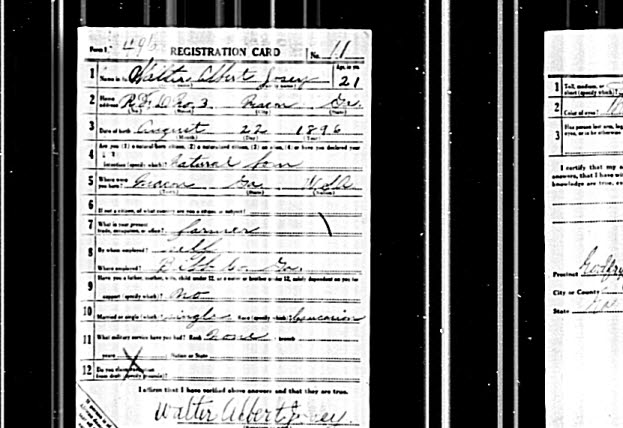 Form 1 496 REGISTRATION CARD No. 11
1 Name in full Walter Albert Josey Age, in yrs. 21
2 Home address R.F.D. No. 3 Macon Ga
3 Date of birth August 22 1896
4 Are you (1) a natural-born citizen, (2) a naturalized citizen, (3) an alien, (4) or have you declared your intention (specify which)? Natural born
5 Where were you born? Macon Ga USA
6 If not a citizen, of what country are you a citizen or subject?
7 What is your present trade, occupation, or office? farmer
8 By whom employed? self
Where employed? Bibb Co. Ga.
9 Have you a father, mother, wife, child under 12, or a sister or brother under 12, solely dependent on you for support (specify which)? No
10 Married or single (which)? single Race (specify which)? Caucasian
11 What military service have you had? Rank None branch
years Nation or State
12 Do you claim exemption from draft (specify grounds)? X
I affirm that I have verified above answers and that they are true.
Walter Albert Josey
1 Tall, medium, or short (specify which)?
2 Color of eyes?
3 Has person lost arm, leg,
eyes, or is he otherwise
I certify that my
answers, that I have
knowledge are true,
Precinct Godfrey
City or County
State